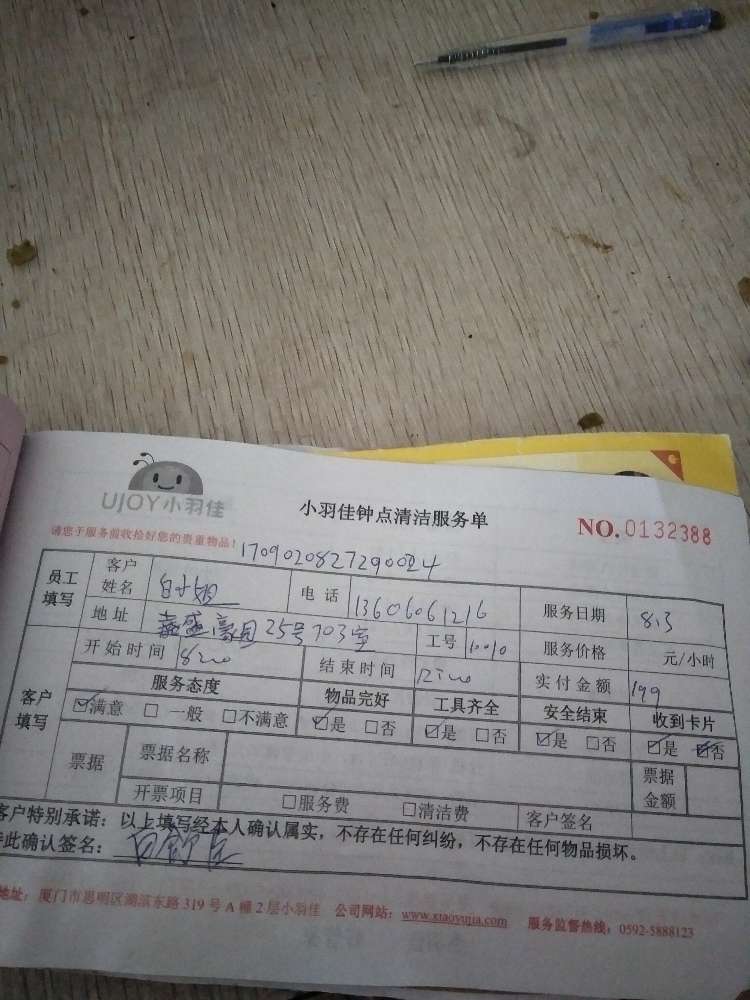 UJOY小羽佳
小羽佳钟点清洁服务单
NO.0132388
请您于服务前收拾好您的贵重物品!
员工填写 客户姓名 白小姐 电话 13606061216 服务日期 8.3
地址 嘉盛豪园25号703室 工号 10010 服务价格 元/小时
客户填写 开始时间 8:00 结束时间 12:00 实付金额 199
服务态度 物品完好 工具齐全 安全结束 收到卡片
☑满意 □一般 □不满意 ☑是 □否 ☑是 □否 ☑是 □否 ☑是 ☑否
票据 票据名称 票据金额
开票项目 □服务费 □清洁费 客户签名
客户特别承诺:以上填写经本人确认属实,不存在任何纠纷,不存在任何物品损坏。
特此确认签名:
地址:厦门市思明区湖滨东路319号A幢2层小羽佳 公司网站:www.xiaoyujia.com 服务监督热线:0592-5888123